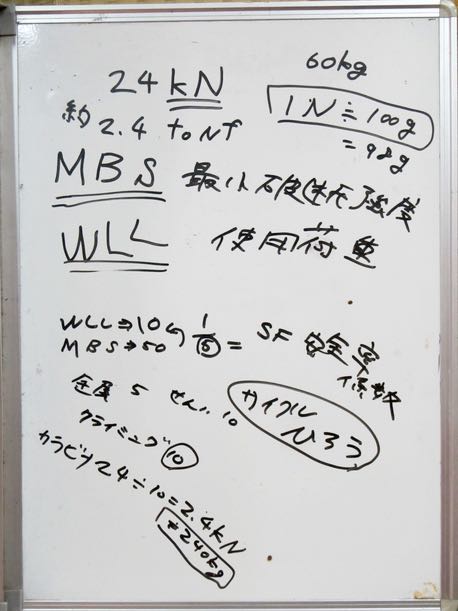 24kN
60kg
約2.4 tonf
1N≒100g
=98g
MBS 最小破断強度
WLL 使用荷重
WLL⇒10
MBS⇒50
1/5 = SF 安全
係数
金属 5 せんい 10
サイクル
ひろう
クライミング 10
カラビナ24÷10=2.4kN
≒240kg